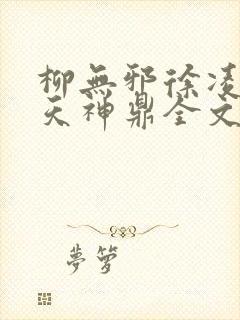 柳無邪徐凌
天神鼎全文
夢蘿